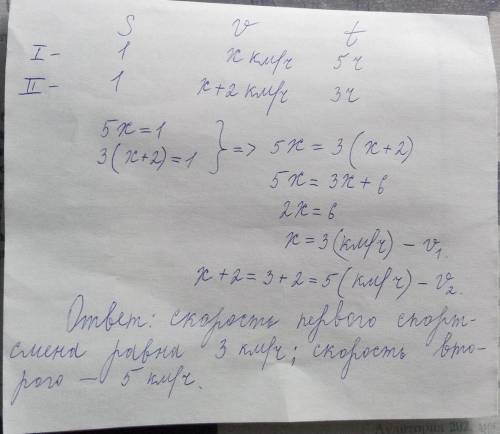 S v t
I - 1 x км/ч 5ч
II - 1 x+2 км/ч 3ч
5x=1
3(x+2)=1 } => 5x = 3(x+2)
5x = 3x+6
2x=6
x=3(км/ч) - v₁.
x+2=3+2=5(км/ч) - v₂.
Ответ: скорость первого спорт-
смена равна 3 км/ч; скорость вто-
рого - 5 км/ч.
Аудитория 202